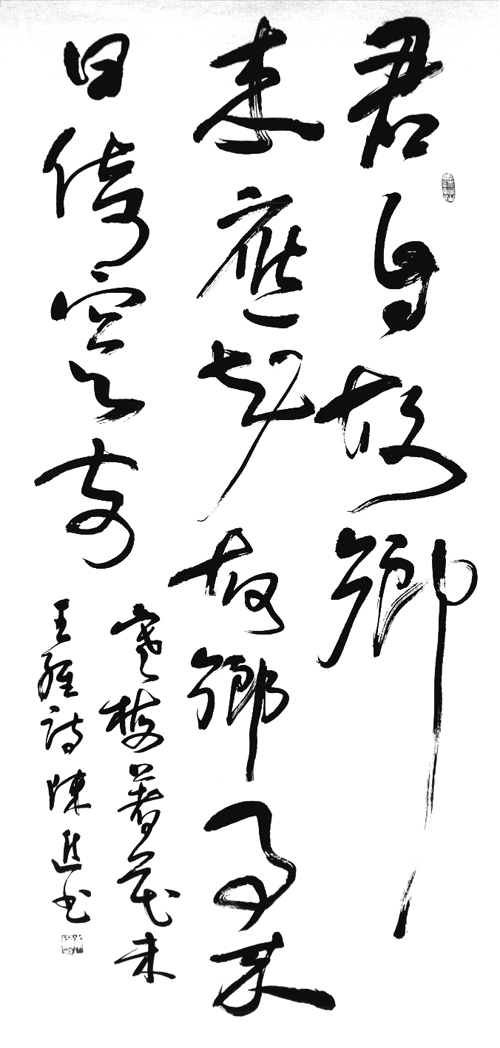 君自故鄉
来應知故鄉事来
日綺窗前
寒梅著花未
王維詩陳书